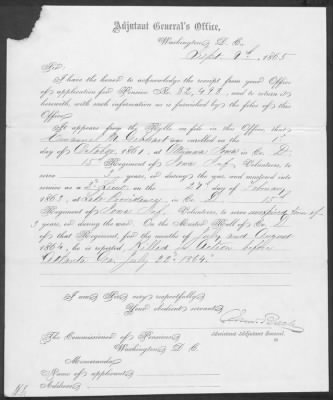 Adjutant General's Office,
Washington, D. C.
Sept. 9th, 1865
Sir:
I have the honor to acknowledge the receipt from your Office
of application for Pension No. 82,498, and to return it
herewith, with such information as is furnished by the files of this
Office.
It appears from the Rolls on file in this Office, that
was enrolled on the
day of October, 1861, at Ottumwa Iowa in Co. D.
15th Regiment of Iowa Inf. Volunteers, to
serve 3 years, or during the war, and mustered into
service as a 2d Lieut on the day of February
1862, at in Co. D. 15th
Regiment of Iowa Inf. Volunteers, to serve
3 years, or during the war. On the Muster Roll of Co. D
of that Regiment, for the months of July and August
1864, he is reported Killed in Action before
Atlanta Ga. July 22d 1864.
I am Sir, very respectfully,
Your obedient servant,
Assistant Adjutant General.
The Commissioner of Pensions
Washington, D. C.
Memoranda:
Name of applicant
Address